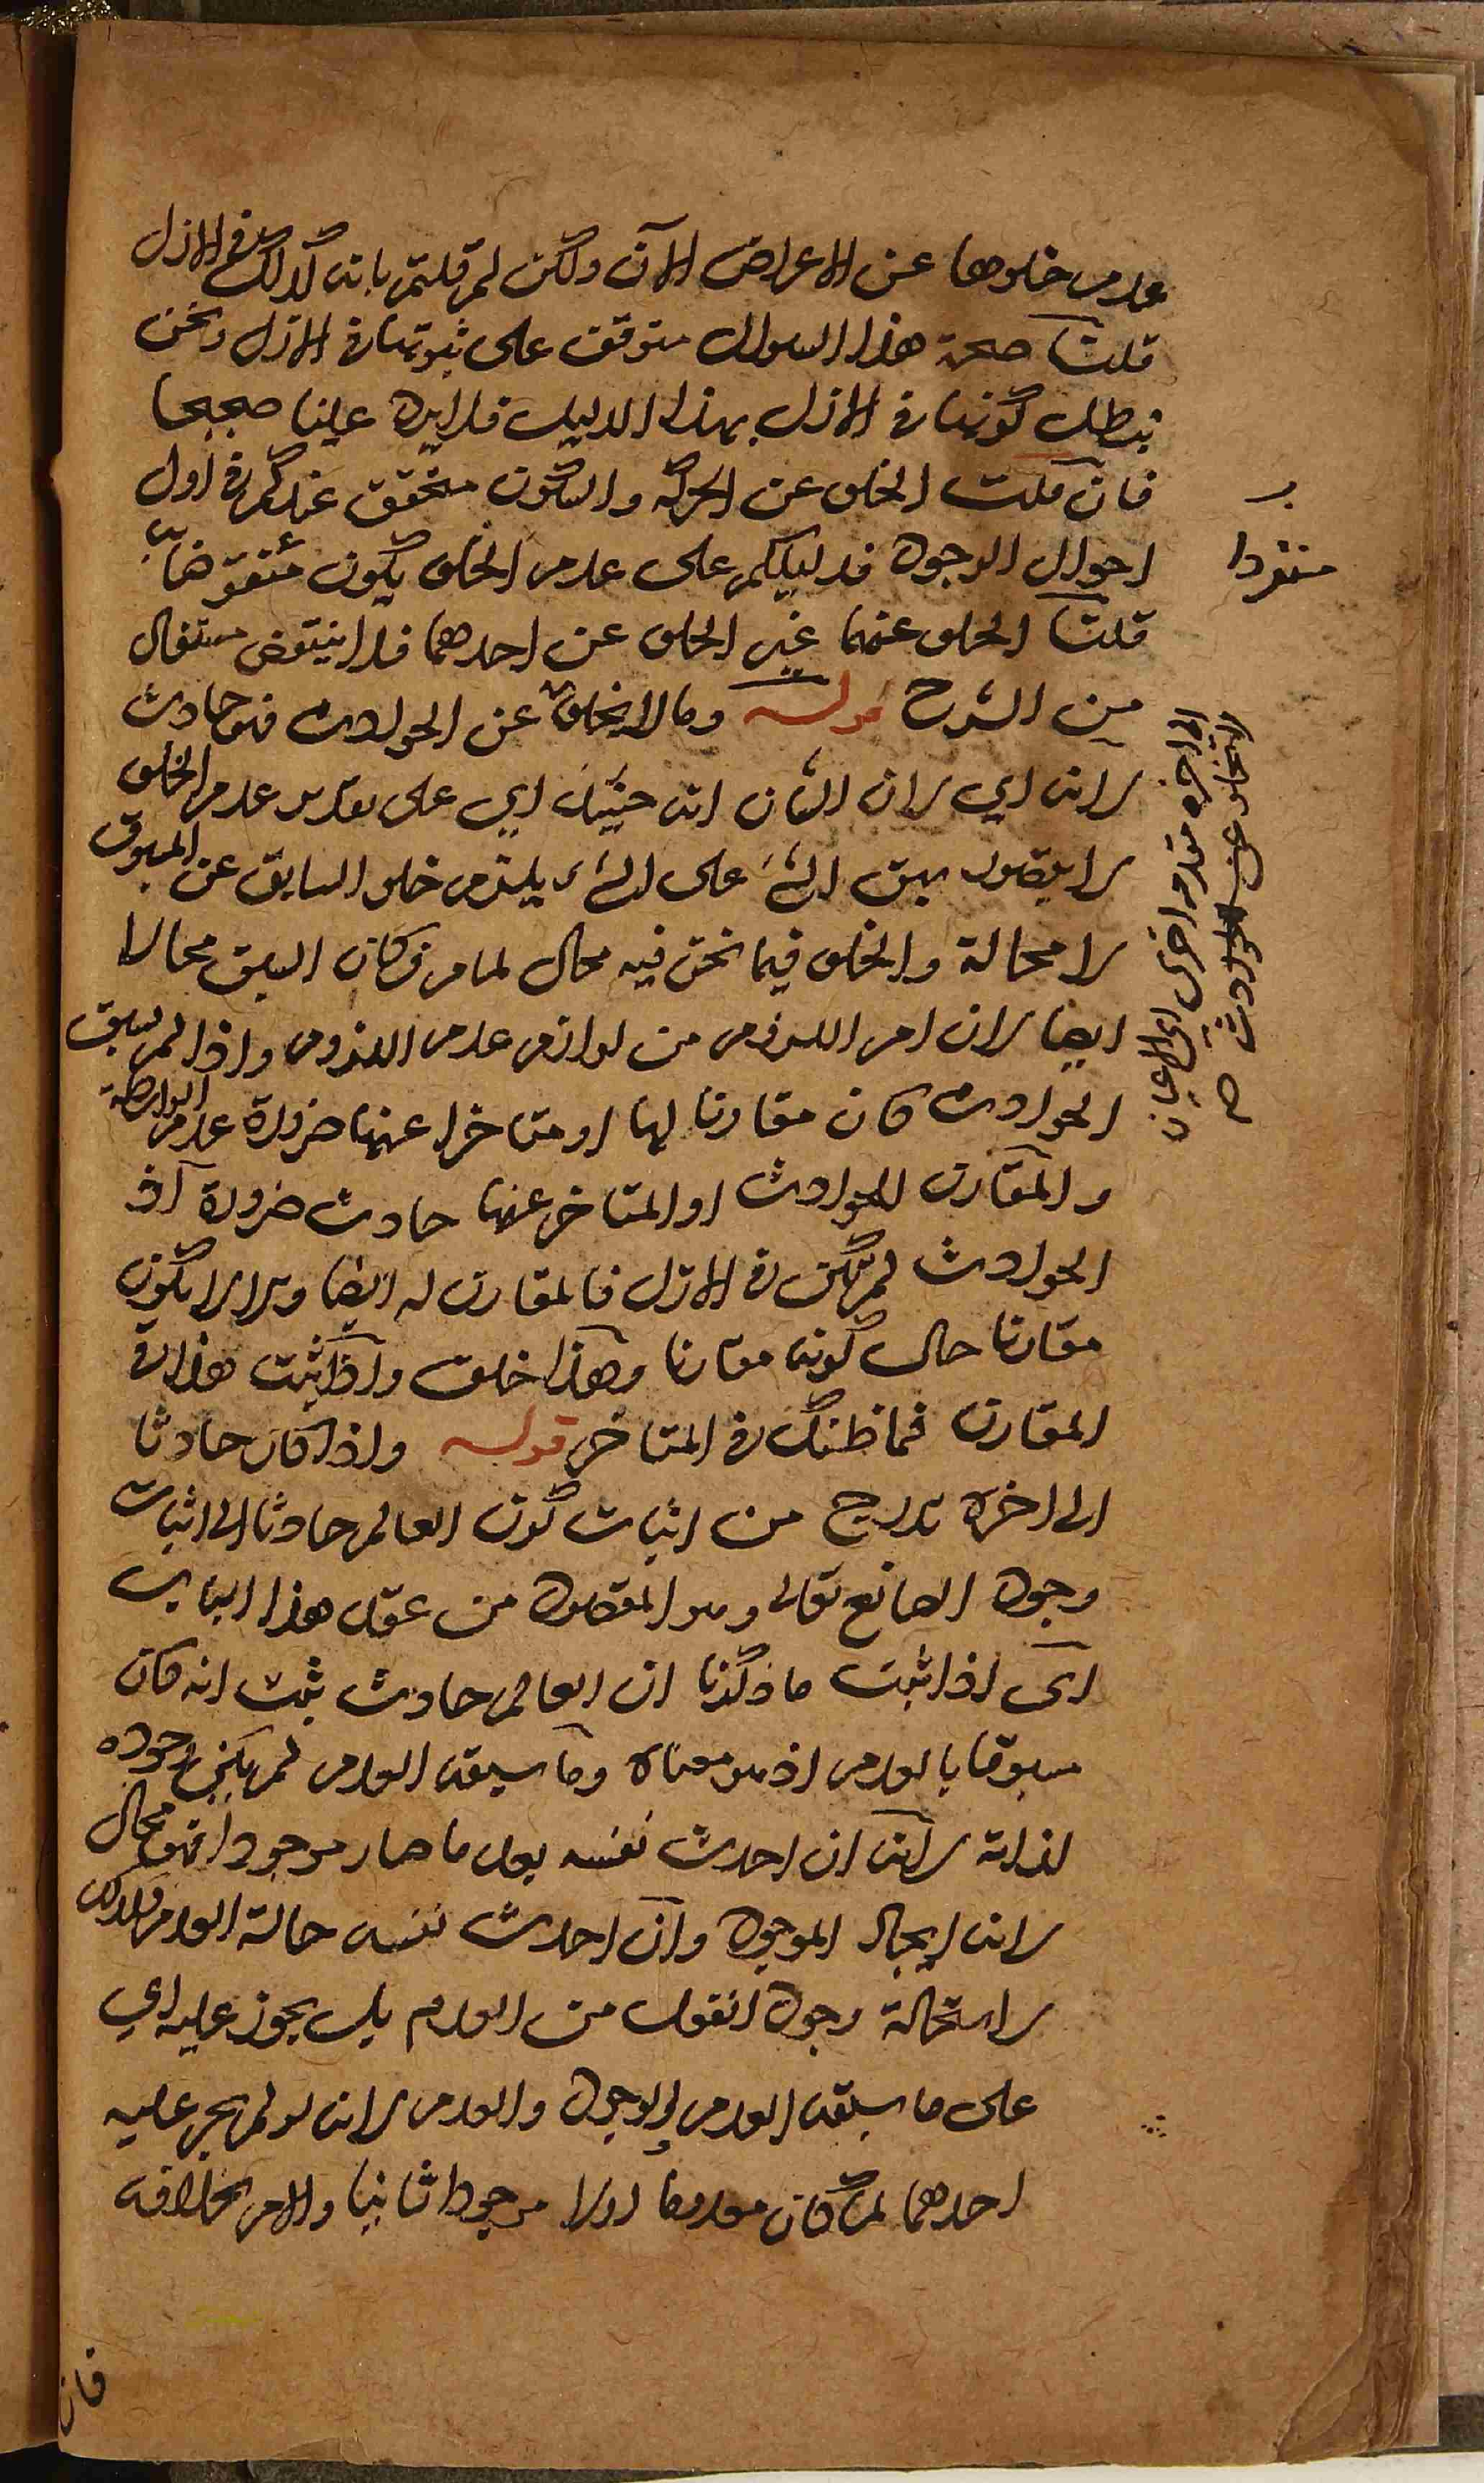 عدم خلوها عن الاعراض الآن ولكن لم قلتم بانه كذلك في الازل
قلنا صحة هذا السوال متوقف على ثبوتها في الازل ونحن
نبطل كونها في الازل بهذا الدليل فلا يرد علينا صحيحا
فان قلت الخلو عن الحركة والسكون متحقق عندكم في اول
احوال الوجود فدليلكم على عدم الخلو يكون منقوضا به
قلنا الخلو عنهما غير الخلو عن احدهما فلا ينتقض
من الشرح قوله وما لا يخلو عن الحوادث فهو حادث
لانه اي لان الشان انه حينئذ اي على تقدير عدم الخلو
لا يتصور سبق الشئ على الشئ يلتزم خلو السابق عن المسبوق
لا محالة والخلو فيما نحن فيه محال لما مر فكان السبق محالا
ايضا لان امر اللزوم من لوازم عدم الملزوم واذا لم يسبق
الحوادث كان مقارنا لها او متاخرا عنها ضرورة عدم الواسطة
والمقارن للحوادث او المتاخر عنها حادث ضرورة اذ
الحوادث لم تكن في الازل فالمقارن له ايضا والا لا يكون
مقارنا حال كونه مقارنا وهذا خلف واذا ثبت هذا في
المقارن فما ظنك في المتاخر قوله واذا كان حادثا
الى اخره تدريج من اثبات كون العالم حادثا الى اثبات
وجود الصانع تعالى وهو المقصود من عقد هذا الباب
اى اذا ثبت ما ذكرنا ان العالم حادث ثبت انه كان
مسبوقا بالعدم اذ هو معناه وما سبقه العدم لم يكن وجوده
لذاته لانه ان احدث نفسه بعد ما صار موجودا فهو محال
لانه ايجاد الموجود وان احدث نفسه حالة العدم فكذلك
لاستحالة وجود الفعل من العدم بل يجوز عليه اي
على ما سبقه العدم الوجود والعدم لانه لو لم يجز عليه
احدهما لما كان معدوما اولا موجودا ثانيا والامر بخلافه
فان
منفردا
الى اخره مقدمة اخرى اى الاعيان
لا تخلو عن الحوادث صح